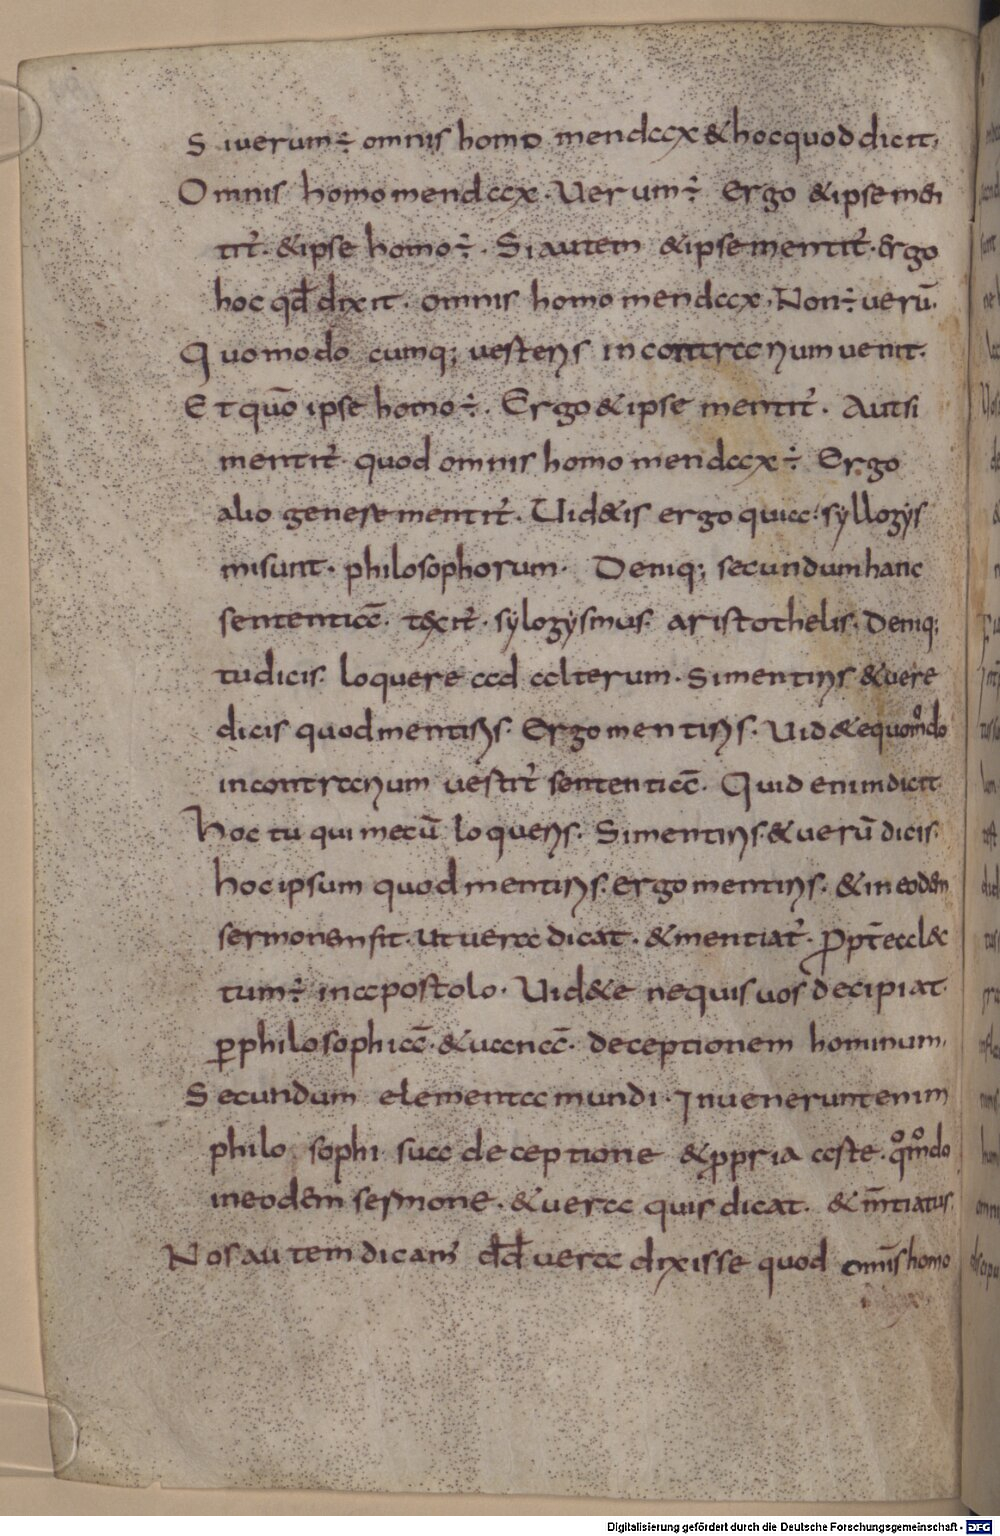 S iuerum÷ omnis homo mendax & hoc quod dicit,
Omnis homo mendax. Uerum÷ Ergo & ipse men
tit᷑. & ipse homo÷. Si autem & ipse mentit᷑. Ergo
hoc qđ dixit. omnis homo mendax. Non÷ uerū.
Quomodo cumq; uesterıs in contrarium uenit.
Et quō ipse homo÷. Ergo & ipse mentit᷑. Aut si
mentit᷑ quod omnis homo mendax÷ Ergo
alio genere mentit᷑. Uid&is ergo quia: syllogys
mi sunt. philosophorum. Deniq; secundum hanc
sententiā. texit᷑. sylogysmus. aristothelis. Deniq;
tu dicis. loquere ad alterum. Si mentiris & uere
dicis quod mentiris. Ergo mentiris. Uid&e quom̊do
in contrarium uestit᷑ sententiā. Quid enim dicit
Hoc tu qui mecū loqueris. Si mentiris. & uerū dicis.
hoc ipsum quod mentiris. ergo mentiris. & in eodem
sermonem fit. ut uera dicat. & mentiat᷑. Propt̄ea lec
tum÷ in apostolo. Uid&e ne quis uos decipiat
ꝑ philosophiā. & uanā. deceptionem hominum,
Secundum elementa mundi. Inuenerunt enim
philo sophi sua deceptione & ꝓpria aste. q̊m̊do
in eodem sermone. & uera quis dicat. & m̄tiatus.
Nos autem dicam᷒ dđ uera dixisse quod omīs homo
Digitalisierung gefördert durch die Deutsche Forschungsgemeinschaft - DFG